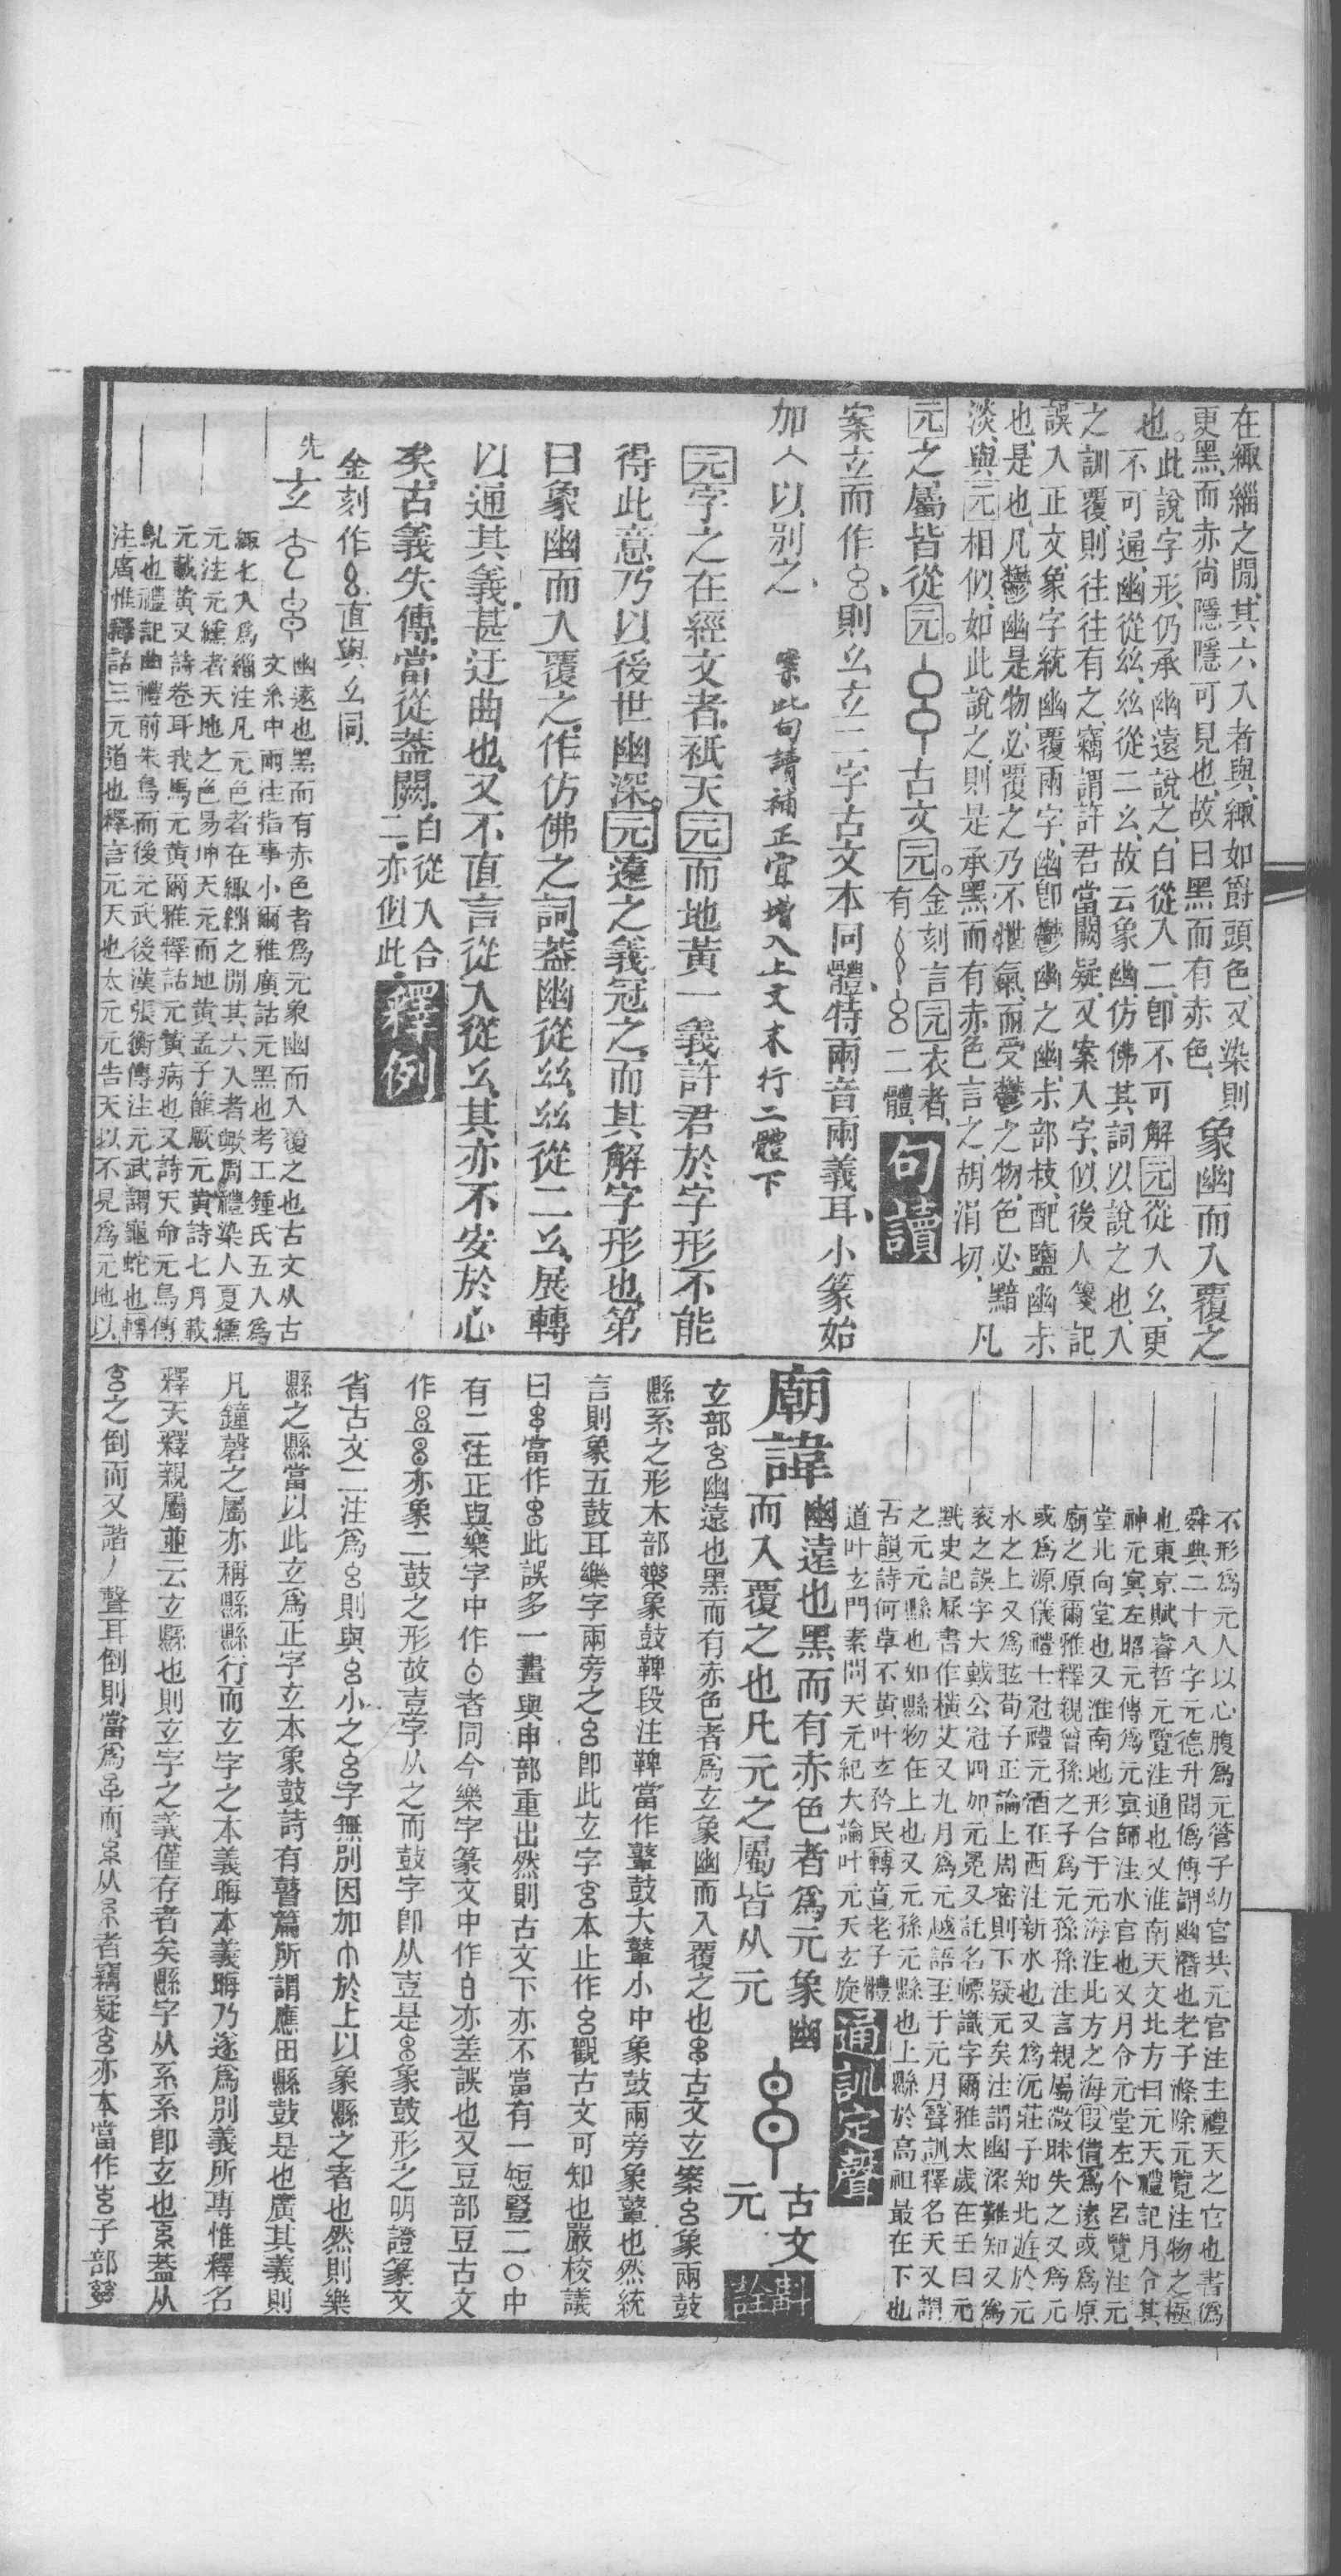 在緅緇之閒其六入者與緅如爵頭色又染則
更黑而赤尚隱隱可見也故曰黑而有赤色象幽而入覆之
也此說字形仍承幽遠說之白從入二卽不可解元從入么更
不可通幽從𢆶𢆶從二么故云象幽仿佛其詞以說之也入
之訓覆則往往有之竊謂許君當闕疑又案入字似後人箋記
誤入正文象字統幽覆兩字幽卽鬱幽之幽尗部枝配鹽幽尗
也是也凡鬱幽是物必覆之乃不泄氣而受鬱之物色必黯
淡與元相似如此說之則是承黑而有赤色言之胡涓切 凡
元之屬皆從元 古文元金刻言元衣者
有 二體 句讀
案立而作 則么立二字古文本同體特兩音兩義耳小篆始
加入以別之 案此句請補正宜增入上文末行二體下
元字之在經文者祇天元而地黃一義許君於字形不能
得此意乃以後世幽深元遠之義冠之而其解字形也第
曰象幽而入覆之作仿佛之詞蓋幽從𢆶𢆶從二么展轉
以通其義甚迂曲也又不直言從入從么其亦不安於心
矣古義失傳當從蓋闕白從入合
二亦似此 釋例
金刻作 直與么同
先 玄 幽遠也黑而有赤色者爲元象幽而入覆之也古文从古
文糸中兩注指事小爾雅廣詁元黑也考工鍾氏五入爲
緅七入爲緇注凡元色者在緅緇之閒其六入者歟周禮染人夏纁
元注元纁者天地之色易坤天元而地黃孟子篚厥元黃詩七月載
元載黃又詩卷耳我馬元黃爾雅釋詁元黃病也又詩天命元鳥傳
鳦也禮記曲禮前朱鳥而後元武後漢張衡傳注元武謂龜蛇也轉
注廣雅釋詁三元道也釋言元天也太元元告天以不見爲元地以
不形爲元人以心腹爲元管子幼官共元官注主禮天之官也書僞
舜典二十八字元德升聞僞傳謂幽潛也老子滌除元覽注物之極
也東京賦睿哲元覽注通也又淮南天文北方曰元天禮記月令其
神元冥左昭元傳爲元冥師注水官也又月令元堂左个呂覽注元
堂北向堂也又淮南地形合于元海注此方之海假借爲遠或爲原
廟之原爾雅釋親曾孫之子爲元孫孫注言親屬微昧失之又爲元
或爲源儀禮士冠禮元酒在西注新水也又爲沅莊子知北遊於元
水之上又爲眩荀子正論上周密則下疑元矣注謂幽深難知又爲
袞之誤字大戴公冠四加元冕又託名幖識字爾雅太歲在壬曰元
黓史記厤書作橫艾又九月爲元越語至于元月聲訓釋名天又謂
之元元縣也如縣物在上也又元孫元縣也上縣於高祖最在下也
古韻詩何草不黃叶玄矜民轉音老子體
道叶玄門素問天元紀大論叶元天玄旋 通訓定聲
廟諱 幽遠也黑而有赤色者爲元象幽
而入覆之也凡元之屬皆从元 古文
元 斠詮
立部 幽遠也黑而有赤色者爲立象幽而入覆之也 古文立案 象兩鼓
縣系之形木部樂象鼓鞞段注鞞當作鼙鼓大鼙小中象鼓兩旁象鼙也然統
言則象五鼓耳樂字兩旁之 卽此立字 本止作 觀古文可知也嚴校議
曰 當作 此誤多一畫與申部重出然則古文下亦不當有一短豎二〇中
有二注正與樂字中作 者同今樂字篆文中作白亦差誤也又豆部豆古文
作 亦象二鼓之形故壴字从之而鼓字卽从壴是 象鼓形之明證篆文
省古文二注爲 則與 小之 字無別因加 於上以象縣之者也然則樂
縣之縣當以此立爲正字立本象鼓詩有瞽篇所謂應田縣鼓是也廣其義則
凡鐘磬之屬亦稱縣縣行而玄字之本義晦本義晦乃遂爲別義所專惟釋名
釋天釋親屬並云立縣也則立字之義僅存者矣縣字从系系卽立也 蓋从
之倒而又諧丿聲耳倒則當爲 而 从 者竊疑 亦本當作 子部